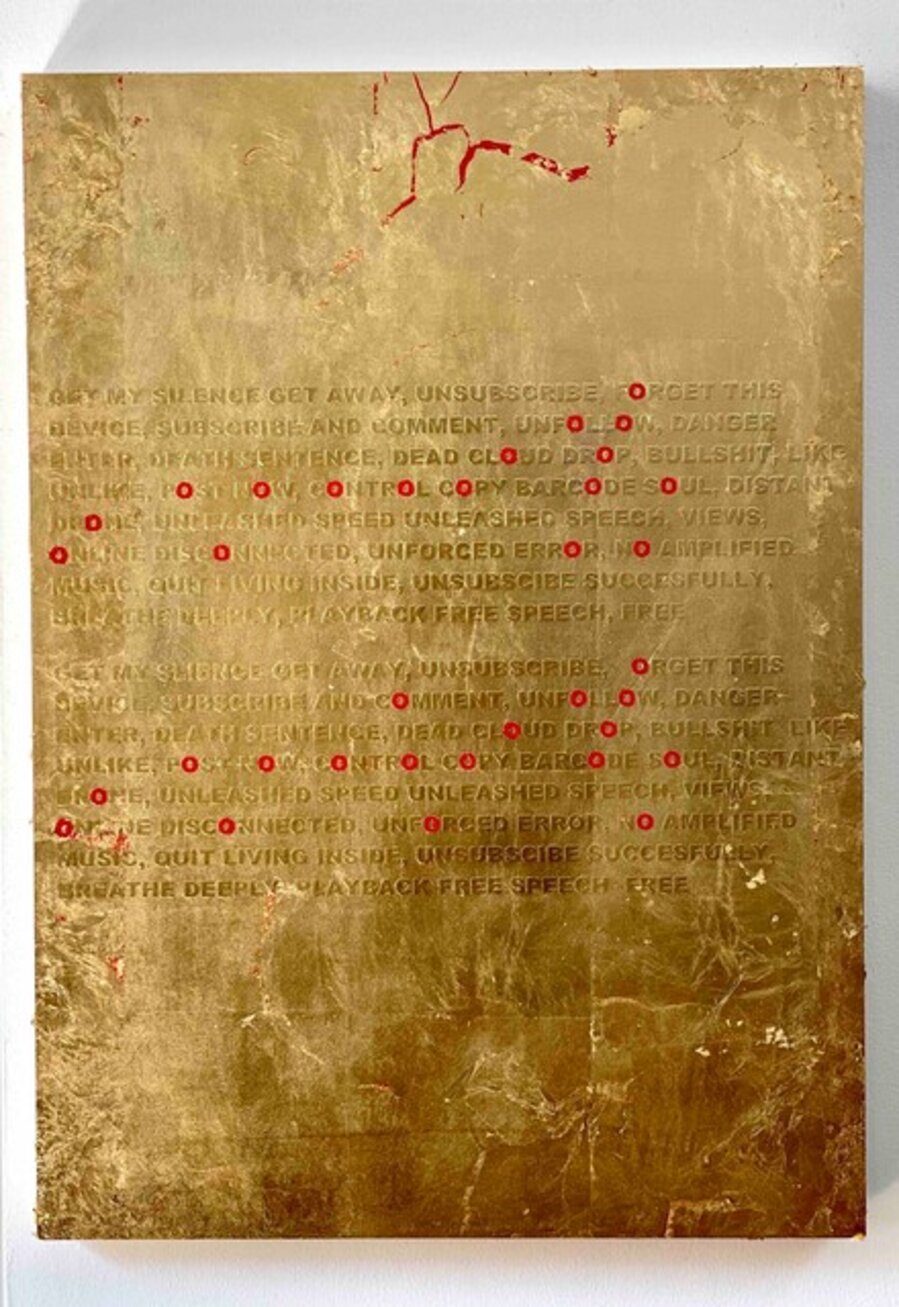 GET MY SILENCE GET AWAY, UNSUBSCRIBE, FORGET THIS
DEVICE, SUBSCRIBE AND COMMENT, UNFOLLOW, DANGER
ENTER, DEATH SENTENCE, DEAD CLOUD DROP, BULLSHIT, LIKE
UNLIKE, POST NOW, CONTROL COPY BARCODE SOUL, DISTANT
DRONE, UNLEASHED SPEED UNLEASHED SPEECH, VIEWS,
ONLINE DISCONNECTED, UNFORCED ERROR, NO AMPLIFIED
MUSIC, QUIT LIVING INSIDE, UNSUBSCIBE SUCCESFULLY,
BREATHE DEEPLY, PLAYBACK FREE SPEECH, FREE
GET MY SILENCE GET AWAY, UNSUBSCRIBE, FORGET THIS
DEVICE SUBSCRIBE AND COMMENT, UNFOLLOW, DANGER
ENTER, DEATH SENTENCE, DEAD CLOUD DROP, BULLSHIT LIKE
UNLIKE, POST NOW, CONTROL COPY BARCODE SOUL, DISTANT
DRONE, UNLEASHED SPEED UNLEASHED SPEECH, VIEWS,
ONLINE DISCONNECTED, UNFORCED ERROR, NO AMPLIFIED
MUSIC, QUIT LIVING INSIDE, UNSUBSCIBE SUCCESFULLY,
BREATHE DEEPLY, PLAYBACK FREE SPEECH FREE